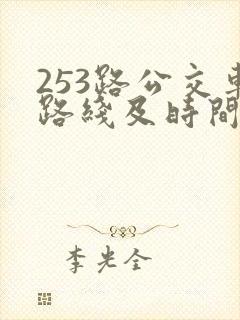 253路公交車
路綫及時間
李光全